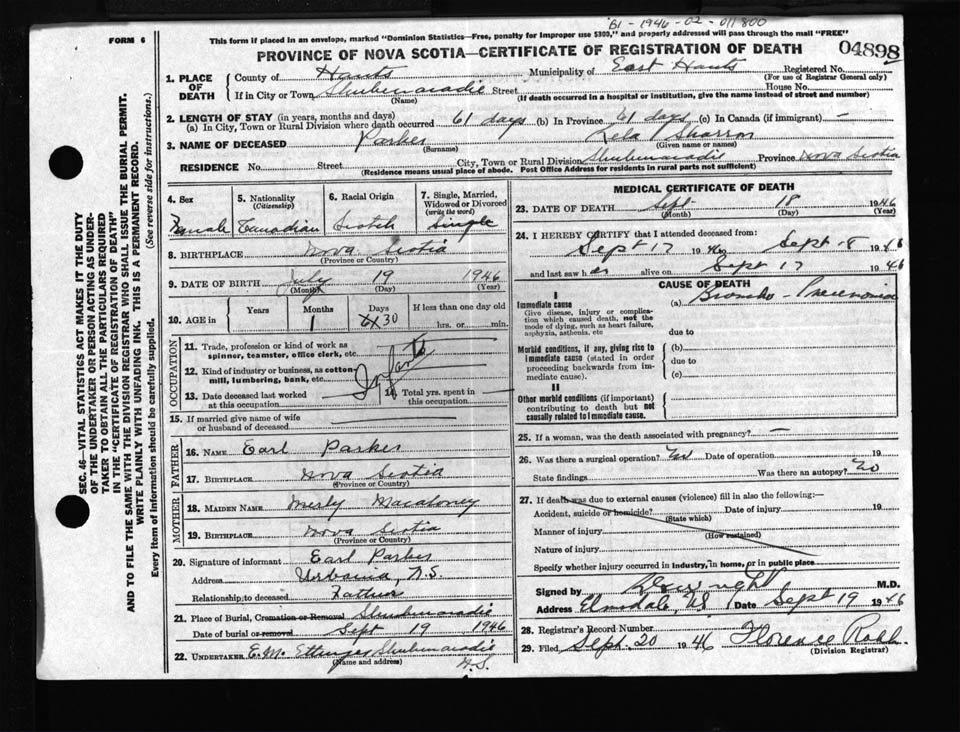 B1-1946-02-011800
FORM 6
This form if placed in an envelope, marked "Dominion Statistics—Free, penalty for improper use $300," and properly addressed will pass through the mail "FREE"
PROVINCE OF NOVA SCOTIA—CERTIFICATE OF REGISTRATION OF DEATH
04898
1. PLACE OF DEATH
County of Hants Municipality of East Hants Registered No.
(For use of Registrar General only)
If in City or Town Shubenacadie Street House No.
(Name) (If death occurred in a hospital or institution, give the name instead of street and number)
2. LENGTH OF STAY (in years, months and days)
(a) In City, Town or Rural Division where death occurred 61 days (b) In Province 61 days (c) In Canada (if immigrant) —
3. NAME OF DECEASED Parker Lela Sharron
(Surname) (Given name or names)
RESIDENCE No. Street City, Town or Rural Division Shubenacadie Province Nova Scotia
(Residence means usual place of abode. Post Office Address for residents in rural parts not sufficient)
4. Sex
Female
5. Nationality
(Citizenship)
Canadian
6. Racial Origin
Scotch
7. Single, Married, Widowed or Divorced
(write the word)
Single
8. BIRTHPLACE Nova Scotia
(Province or Country)
9. DATE OF BIRTH July 19 1946
(Month) (Day) (Year)
10. AGE in Years Months Days If less than one day old
1 30 hrs. or min.
OCCUPATION
11. Trade, profession or kind of work as spinner, teamster, office clerk, etc.
12. Kind of industry or business, as cotton mill, lumbering, bank, etc.
Infant
13. Date deceased last worked at this occupation
14. Total yrs. spent in this occupation
15. If married give name of wife or husband of deceased
FATHER
16. NAME Earl Parker
17. BIRTHPLACE Nova Scotia
(Province or Country)
MOTHER
18. MAIDEN NAME Macaloney
19. BIRTHPLACE Nova Scotia
(Province or Country)
20. Signature of informant Earl Parker
Address Urbania, N.S.
Relationship to deceased Father
21. Place of Burial, Cremation or Removal Shubenacadie
Date of burial or removal Sept 19 1946
22. UNDERTAKER E.M. Ettinger Shubenacadie
(Name and address) N.S.
MEDICAL CERTIFICATE OF DEATH
23. DATE OF DEATH Sept 18 1946
(Month) (Day) (Year)
24. I HEREBY CERTIFY that I attended deceased from:
Sept 17 1946 to Sept 18 1946
and last saw her alive on Sept 17 1946
CAUSE OF DEATH
I
Immediate cause (a) Broncho-Pneumonia
Give disease, injury or complication which caused death, not the mode of dying, such as heart failure, asphyxia, asthenia, etc
due to
Morbid conditions, if any, giving rise to immediate cause (stated in order proceeding backwards from immediate cause).
(b)
due to
(c)
II
Other morbid conditions (if important) contributing to death but not causally related to immediate cause.
25. If a woman, was the death associated with pregnancy? —
26. Was there a surgical operation? No Date of operation 19
State findings Was there an autopsy? No
27. If death was due to external causes (violence) fill in also the following:
Accident, suicide or homicide? Date of injury 19
(State which)
Manner of injury
(How sustained)
Nature of injury
Specify whether injury occurred in industry, in home, or in public place
Signed by M.D.
Address Elmsdale, NS Date Sept 19 1946
28. Registrar's Record Number
29. Filed Sept. 20 1946 Florence Robb
(Division Registrar)
SEC. 46—VITAL STATISTICS ACT MAKES IT THE DUTY
OF THE UNDERTAKER OR PERSON ACTING AS UNDER-
TAKER TO OBTAIN ALL THE PARTICULARS REQUIRED
IN THE "CERTIFICATE OF REGISTRATION OF DEATH"
AND TO FILE THE SAME WITH THE DIVISION REGISTRAR WHO SHALL ISSUE THE BURIAL PERMIT.
WRITE PLAINLY WITH UNFADING INK. THIS IS A PERMANENT RECORD.
Every item of information should be carefully supplied. (See reverse side for instructions.)